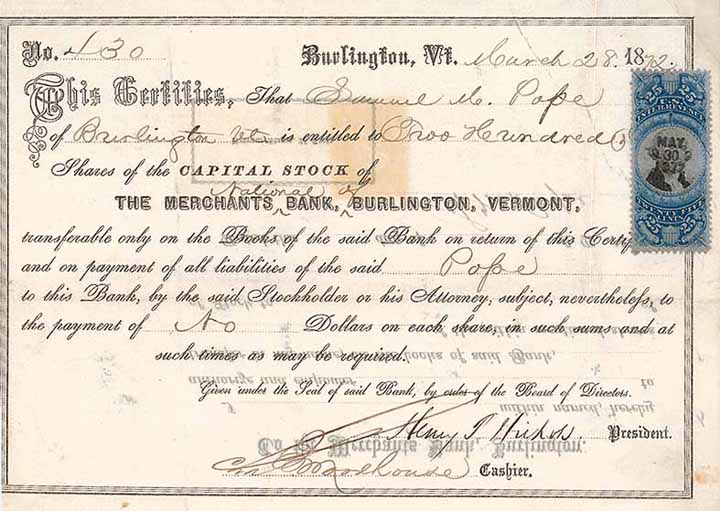 No. 430 Burlington, Vt. March 28. 1872.
This Certifies, That Samuel M. Pope
of Burlington Vt. is entitled to Two Hundred
Shares of the CAPITAL STOCK of
National of
THE MERCHANTS BANK, BURLINGTON, VERMONT,
transferable only on the Books of the said Bank on return of this Certif
and on payment of all liabilities of the said Pope
to this Bank, by the said Stockholder or his Attorney, subject, nevertheless, to
the payment of No Dollars on each share, in such sums and at
such times as may be required.
Given under the Seal of said Bank, by order of the Board of Directors.
Henry P. Nichols President.
Woodhouse Cashier.
25 U.S. 25
INTER. REVENUE
MAY
30
TWENTY FIVE
25 25